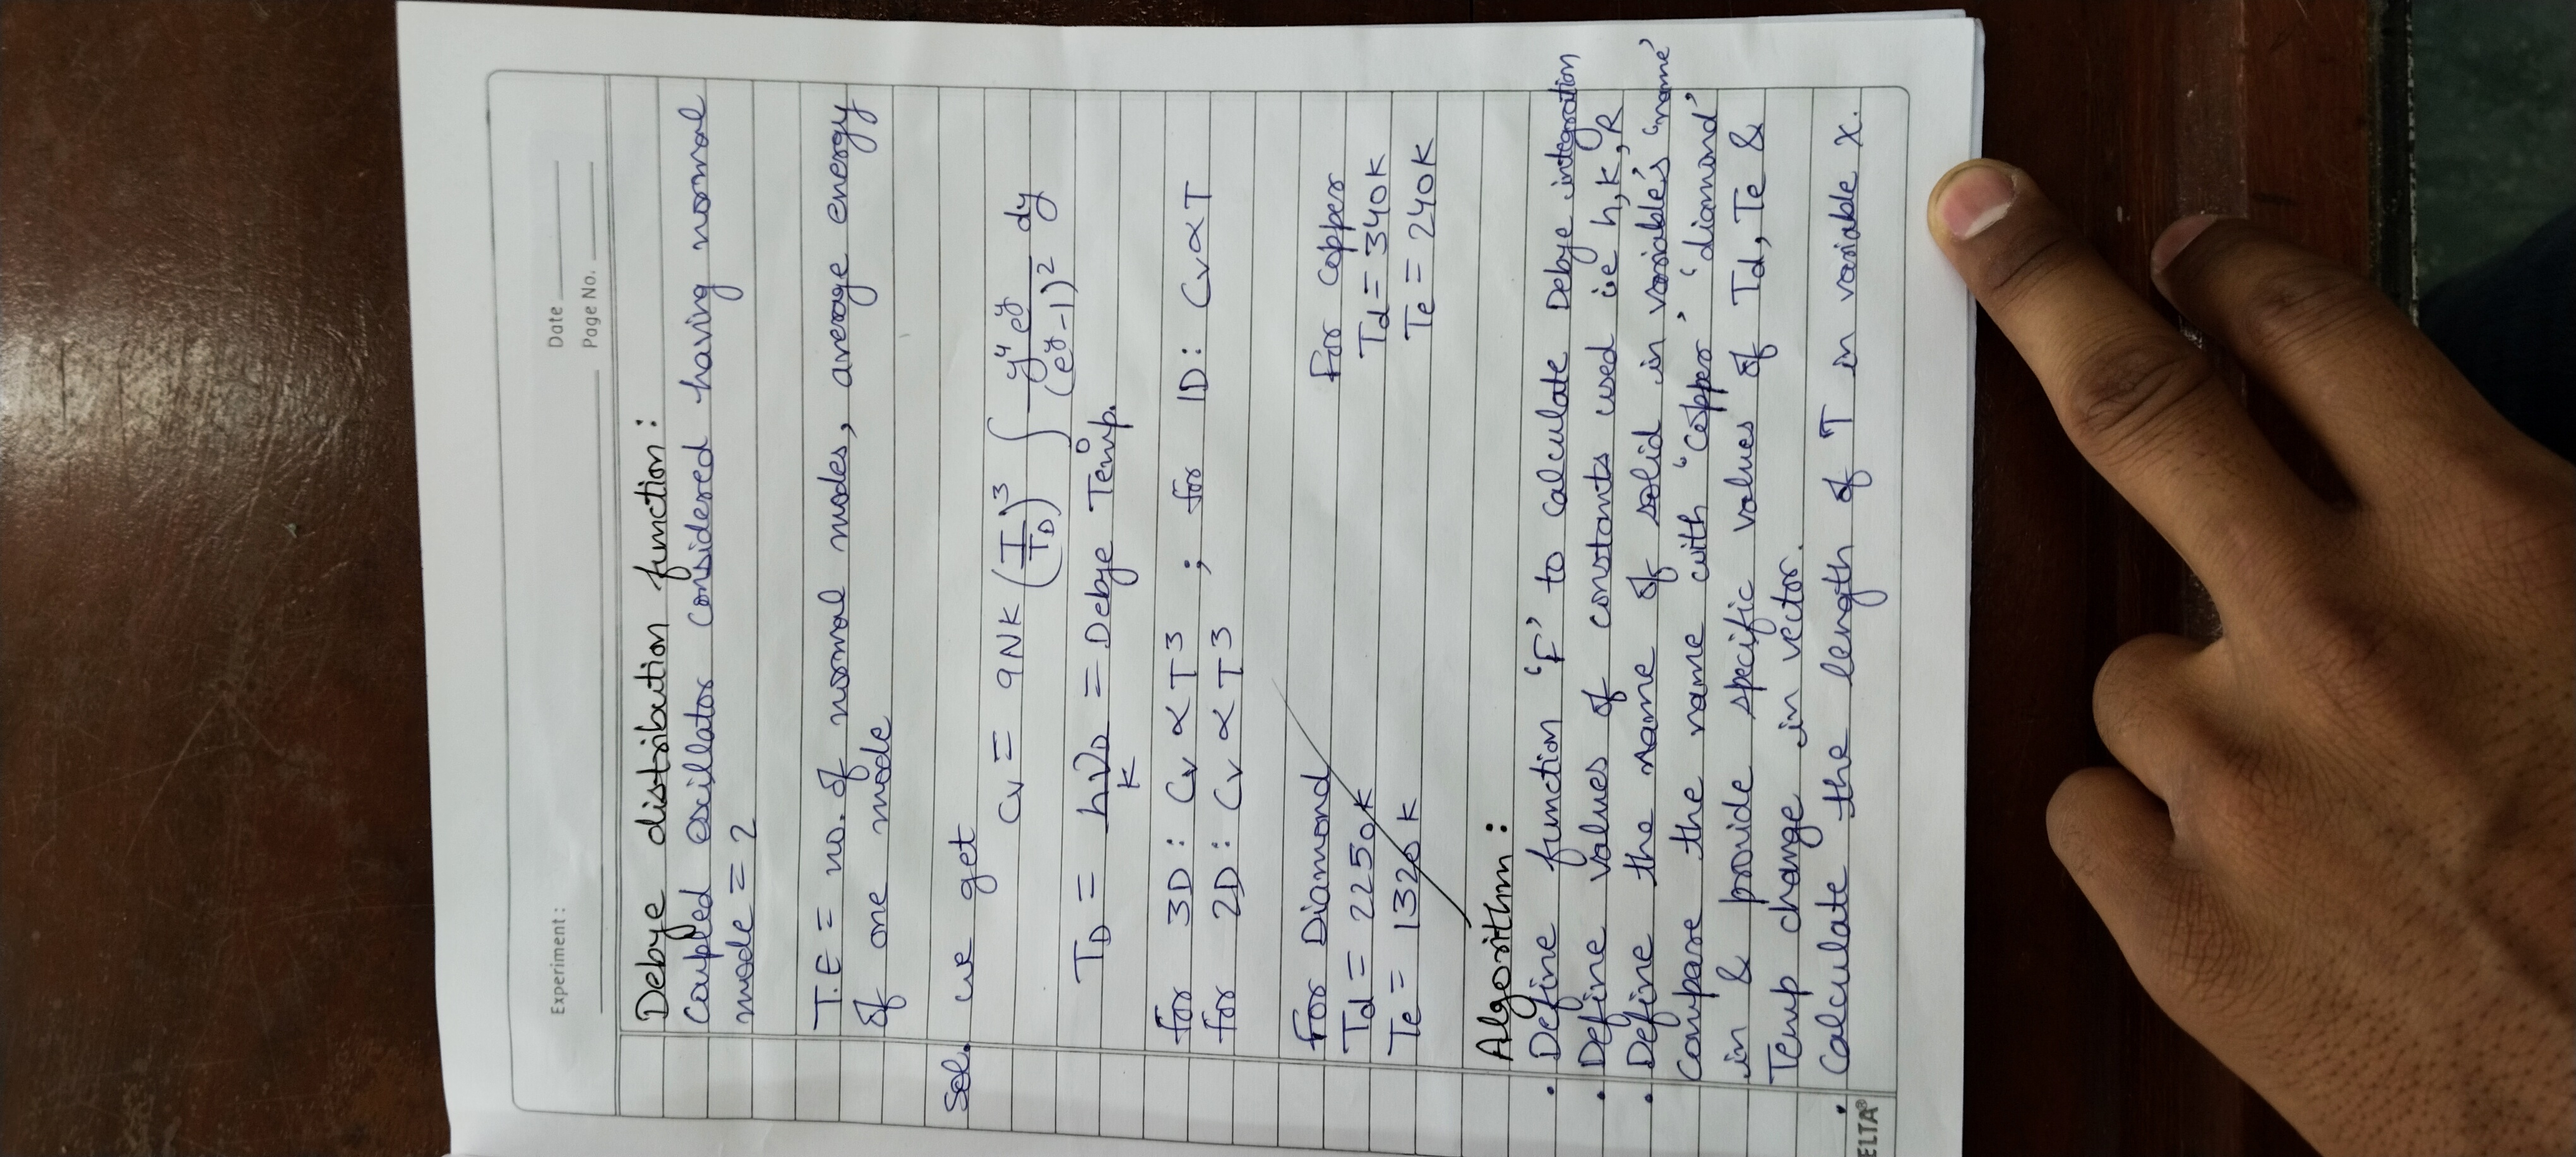 Experiment :
Date
Page No.
Debye distribution function :
Coupled oscillator considered having normal
mode = 2
T.E = no. of normal modes, average energy
of one mode
Sol. we get
Cv = 9NK (T/TD)³ ∫₀ y⁴ e^y/(e^y-1)² dy
TD = hνD/K = Debye Temp.
for 3D : Cv ∝ T³ ; for 1D : Cv ∝ T
for 2D : Cv ∝ T³
For Diamond
For Copper
Td = 2250K
Td = 340K
Te = 1320K
Te = 240K
Algorithm :
• Define function 'F' to calculate Debye integration
• Define values of constants used ie h, K, R
• Define the name of solid in variable's 'name'
Compare the name with 'Copper' 'diamond'
in & provide specific values of Td, Te &
Temp change in vector.
• Calculate the length of T in variable x.
ELTA®